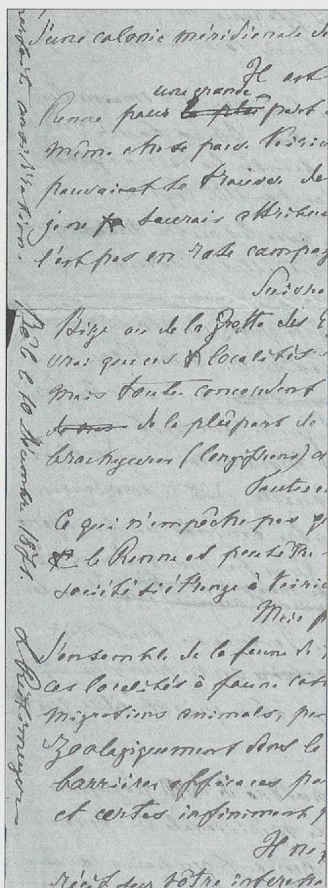 d'une colonie méridionale de
Il est
une grande
Renne pour le plu part
même chose pour Veiri
pouvaient se trouver de
je ne saurais attribue
l'est pas en rase campag
Suivre
Bize ou de la grotte des E
vrai que ces localités
mais toutes concordent
de la plûpart de
brachyures (longifrons) o
Toutes
Ce qui n'empêche pas q
le Renne et peutêtre
société si étrange à Veiri
Mais p
l'ensemble de la faune de
ces localités à faune
migrations animals, pu
zoologiquement dans le
barrières efficaces po
et certes infiniment p
Il ne
récit sur vôtre interpr
parfaite considération.
Bâle 10 Décembre 1871.
L Rütimeyer